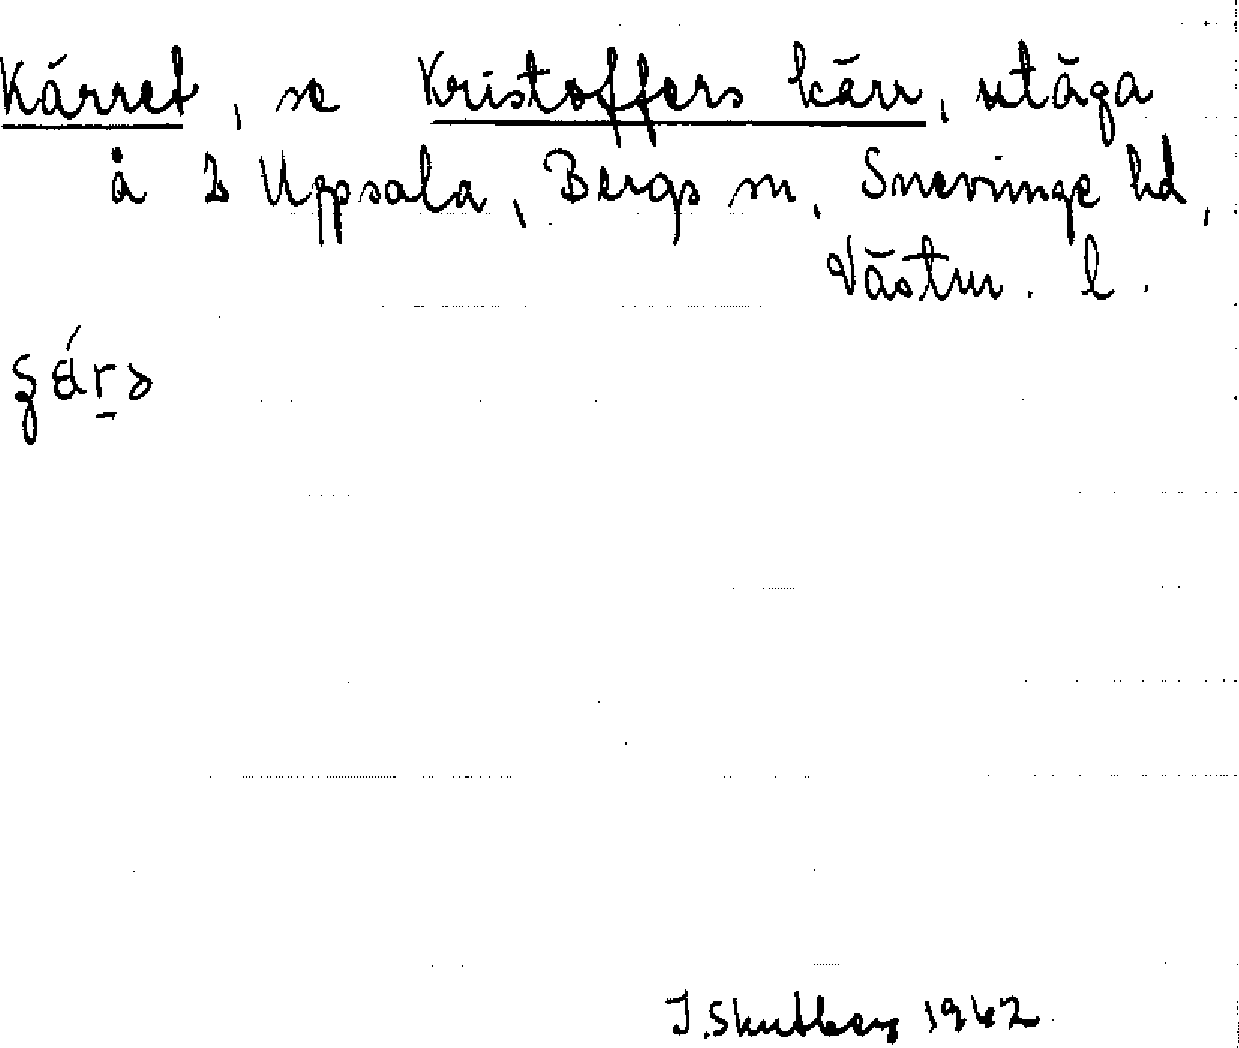 Kärret, se Kristoffers kärr, utäga
å 2 Uppsala, Bergs sn, Snevringe hd,
Västm. l.
J. Skutberg 1942